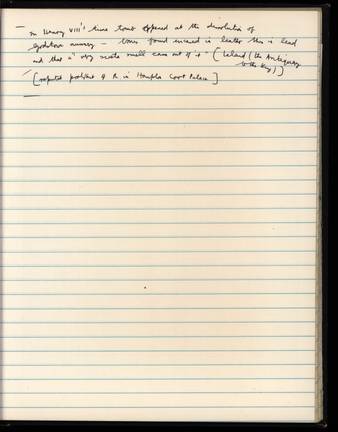 — in Henry VIII's time tomb opened at the dissolution of
Godstow nunnery — bones found encased in leather then in lead
and that a "very sweete smell came out of it" (Leland (the Antiquary
to the King))
— [reputed portrait of R in Hampton Court Palace]
—